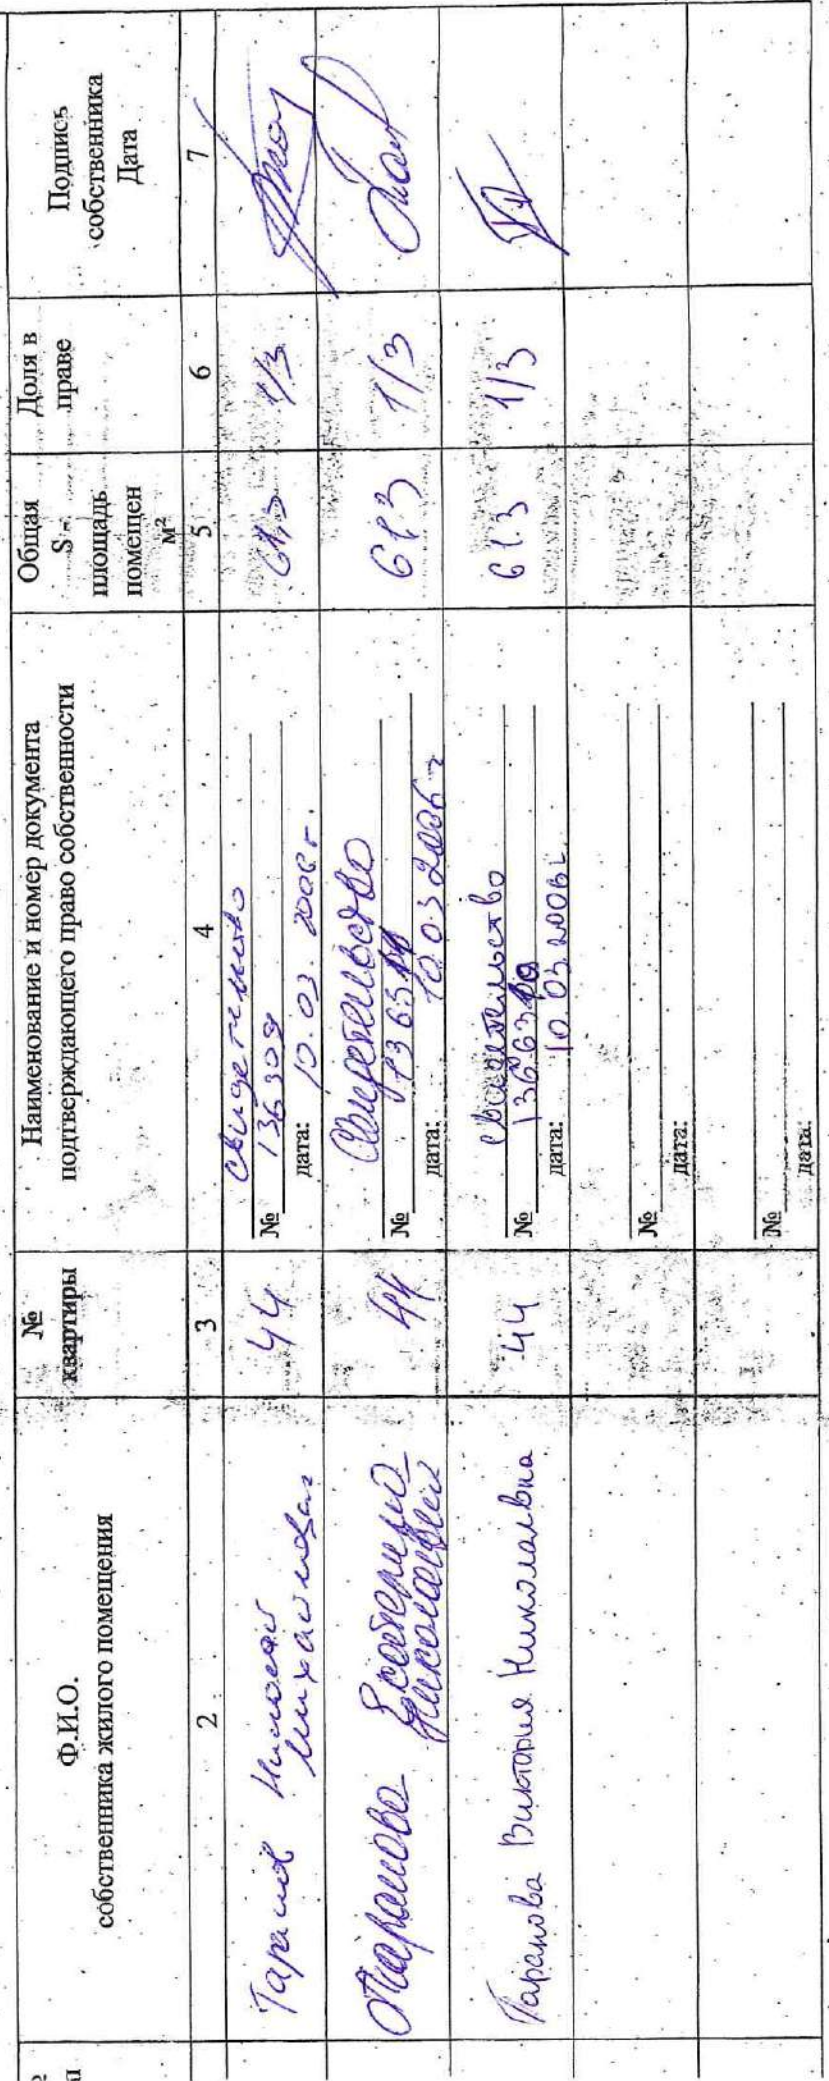 Ф.И.О.
собственника жилого помещения
№
квартиры
Наименование и номер документа
подтверждающего право собственности
Общая
S -
площадь
помещен
м²
Доля в
праве
Подпись
собственника
Дата
2
3
4
5
6
7
Таранов Николай
Михайлович
44
свидетельство
№ 136309
дата: 10.03.2006 г.
61,3
1/3
Таранова Екатерина
Николаевна
44
Свидетельство
№
дата: 10.03.2006 г
61,3
1/3
Таранова Виктория Николаевна
44
свидетельство
№
дата: 10.03.2006 г.
61.3
1/3
№
дата:
№
дата: